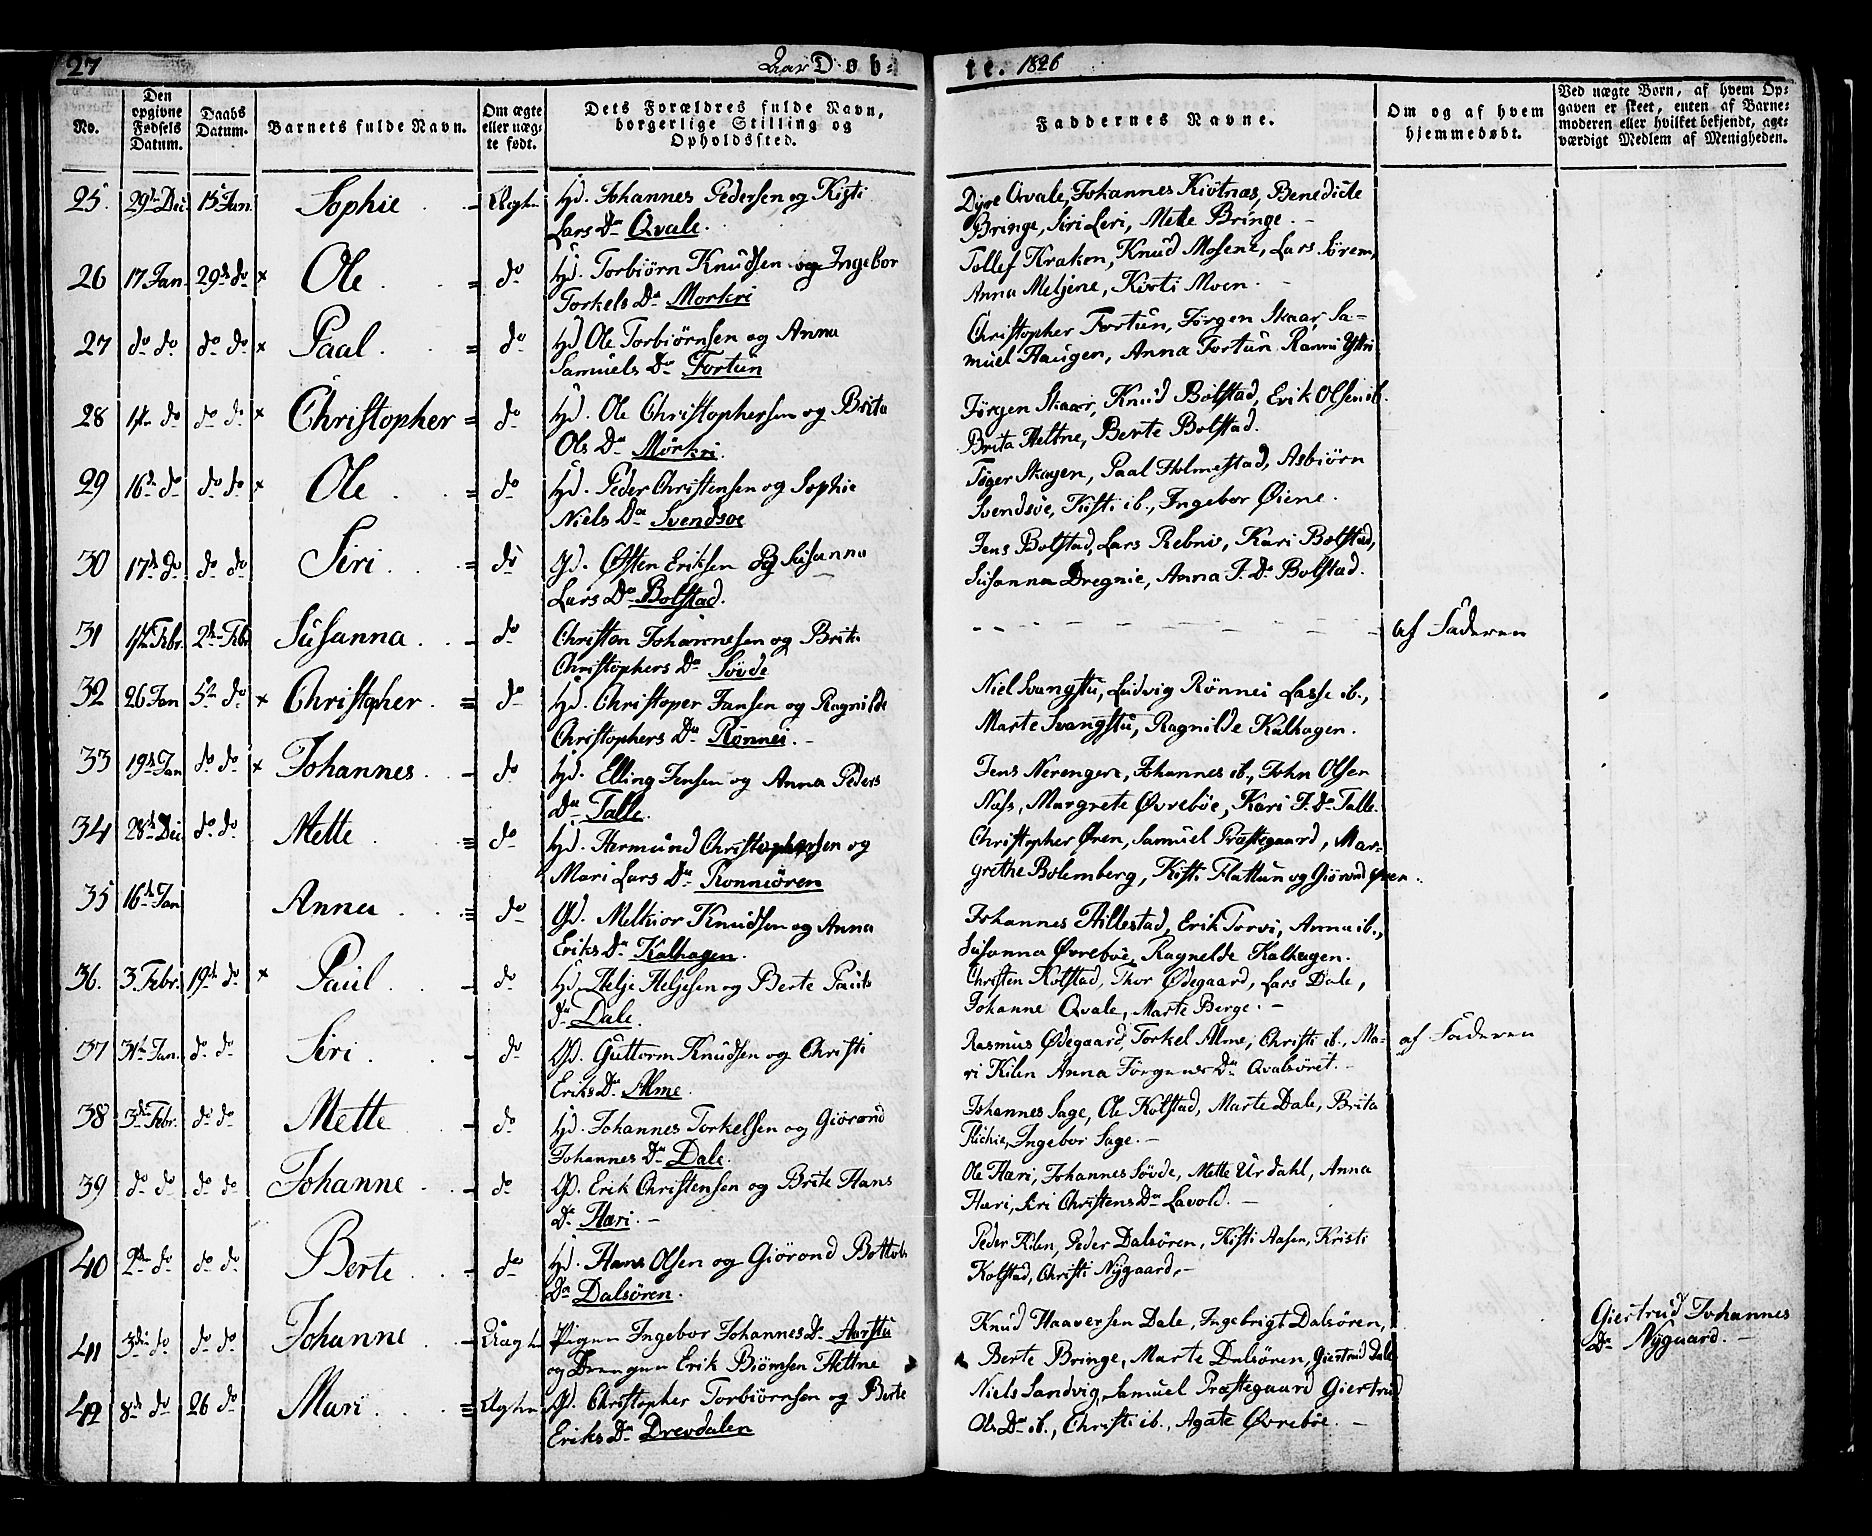 27 Aar Døb-te. 1826
No. | Den opgivne Fødsels Datum. | Daabs Datum. | Barnets fulde Navn. | Om ægte eller uæg-te født. | Dets Forældres fulde Navn, borgerlige Stilling og Opholdssted. | Faddernes Navne. | Om og af hvem hjemmedøbt. | Ved uægte Børn, af hvem Op-gaven er skeet, enten af Barne-moderen eller hvilket bekjendt, age-værdigt Medlem af Menigheden.
25. 29de Dec. 15 Jan. Sophie . - Ægte Hd. Johannes Pedersen og Kisti
Lars Dr Qvale. Dyre Qvale, Johannes Kivtnæs, Benedicte
Bringe, Siri Leri, Mette Bringe. -
26 17 Jan. 29de do x Ole . . = do Hd. Torbiørn Knudsen og Ingebor
Torkels Dr Morkri Tollef Kraken, Knud Mosene, Lars Sørem,
Anna Meljene, Kirti Moen. -
27 do do do do x Paal . . = do Hd Ole Torbiørnsen og Anna
Samuels Dr Fortun Christopher Fortun, Jørgen Skaar, Sa-
muel Haugen, Anna Fortun Ranni Yttri
28 14 do do do x Christopher = do Hd. Ole Christophersen og Brita
Ols Dr Mørkri. Jørgen Skaar, Knud Bolstad, Erik Olsen ib.
Brita Heltne, Berte Bolstad.
29 16de do do do x Ole . . = do Hd. Peder Christensen og Sophie
Niels Dr Svendsøe Tøger Skagen, Paal Holmestad, Asbiørn
Svendsøe, Kisti ib., Ingebor Øiene.
30 17de do do do Siri . . = do Gd. Østen Eriksen og Susanna
Lars Dr Bolstad. Jens Bolstad, Lars Rebni, Kari Bolstad,
Susanna Dregnie, Anna J. Dr Bolstad.
31 1ste Febr. 2de Febr Susanna . - do Christen Johannesen og Brita
Christophers Dr Søvde - - - - - - - af Faderen
32 26 Jan 5te do x Christopher . = do Hd. Christoper Jansen og Ragnilde
Christophers Dr Rønnei. - Niel Svangstu, Ludvig Rønnei Lasse ib.,
Marte Svangstu, Ragnilde Kalhagen.
33 19de Jan do do x Johannes . - do Hd. Elling Jensen og Anna Peders
Dr Talle. Jens Nerengen, Johannes ib., John Olsen
Næss, Margrete Øvrebøe, Kari J. Dr Talle.
34 28de Dec do do Mette . = do Hd. Hermund Christophersen og
Mari Lars Dr Ronneøren Christopher Øren, Samuel Præstegaard, Mar-
grethe Bolemberg, Kisti Flattun og Giørond Øren.
35 16de Jan Anna . . = do Gd. Melkior Knudsen og Anna
Eriks Dr Kalhagen. Johannes Hillestad, Erik Torvi, Anna ib.,
Susanna Øvrebøe, Ragnelde Kalhagen.
36. 3. Febr. 19de do x Paul . - do Hd. Helje Heljesen og Berte Pauls
Dr Dale. Christen Kolstad, Thor Ødegaard, Lars Dale,
Johanne Qvale, Marte Berge. -
37 31te Jan. do do Siri . - do Gd. Guttorm Knudsen og Christi
Eriks Dr Alme. Rasmus Ødegaard, Torkel Alme, Christi ib., Ma-
ri Kilen Anna Jørgens Dr Qvalsøret. - af Faderen
38 3de Febr. do do Mette . - do Hd. Johannes Torkelsen og Giørond
Johannes Dr Dale. Johannes Sage, Ole Kolstad, Marte Dale, Brita
Ingebor Sage. -
39 do do do do Johanne . - do Gd. Erik Christensen og Brite Hans
Dr Hæri. - Ole Hæri, Johannes Søvde, Mette Urdahl, Anna
Hæri, Siri Christens Dr Lavold. -
40 2de do do do Berte . . - do Hd. Hans Olsen og Giørond Bottols
Dr Dalsøren. Peder Kilen, Peder Dalsøren, Kisti Aasen, Kristi
Kolstad, Christi Nygaard, -
41 3de do do do Johanne . - Uægte Pigen Ingebor Johannes Dr Aarstu
og Drengen Erik Biørnsen Heltne Knud Haaversen Dale, Ingebrigt Dalsøren,
Berte Bringe, Marte Dalsøren, Giertrud Dale Giertrud Johannes
Dr Nygaard. -
42 8de do 26 do Mari . . = Ægte Gd. Christopher Torbiørnsen og Berte
Eriks Dr Drevdalen Niels Sandvig, Samuel Præstegaard Giertrud
Ols Dr ib., Christi ib., Agate Øvrebøe. -